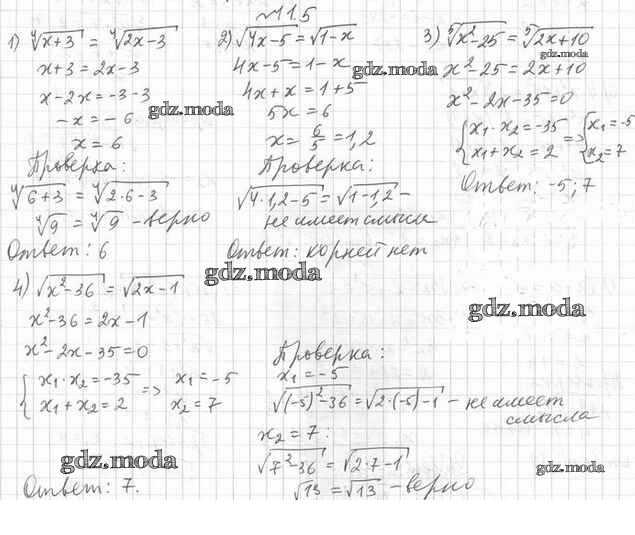 №11.5
1) ⁴√(x+3) = ⁴√(2x-3)
x+3 = 2x-3
x-2x = -3-3
-x = -6
x = 6
Проверка:
⁴√(6+3) = ⁴√(2·6-3)
⁴√9 = ⁴√9 - верно
Ответ: 6
2) √(4x-5) = √(1-x)
4x-5 = 1-x
4x+x = 1+5
5x = 6
x = 6/5 = 1,2
Проверка:
√(4·1,2-5) = √(1-1,2) -
не имеет смысла
Ответ: корней нет
3) ⁵√(x²-25) = ⁵√(2x+10)
x²-25 = 2x+10
x²-2x-35=0
{x₁·x₂ = -35 => {x₁ = -5
x₁+x₂ = 2 x₂ = 7
Ответ: -5; 7
4) √(x²-36) = √(2x-1)
x²-36 = 2x-1
x²-2x-35=0
{x₁·x₂ = -35 => x₁ = -5
x₁+x₂ = 2 x₂ = 7
Проверка:
x₁ = -5
√((-5)²-36) = √(2·(-5)-1) - не имеет
смысла
x₂ = 7:
√(7²-36) = √(2·7-1)
√13 = √13 - верно
Ответ: 7.
gdz.moda
gdz.moda
gdz.moda
gdz.moda
gdz.moda
gdz.moda
gdz.moda